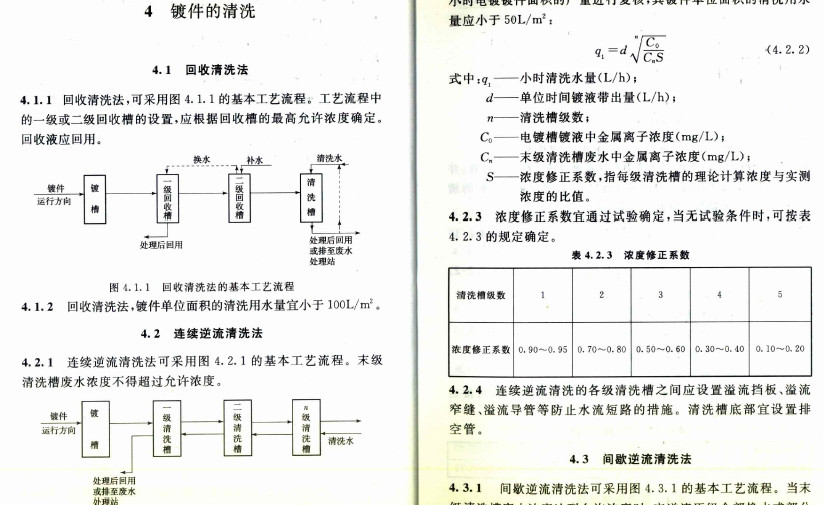 4 镀件的清洗
4.1 回收清洗法
4.1.1 回收清洗法,可采用图 4.1.1 的基本工艺流程。工艺流程中
的一级或二级回收槽的设置,应根据回收槽的最高允许浓度确定。
回收液应回用。
换水
补水
清洗水
镀件
运行方向
镀槽
一级回收槽
二级回收槽
清洗槽
处理后回用
处理后回用
或排至废水
处理站
图 4.1.1 回收清洗法的基本工艺流程
4.1.2 回收清洗法,镀件单位面积的清洗用水量宜小于 100L/m²。
4.2 连续逆流清洗法
4.2.1 连续逆流清洗法可采用图 4.2.1 的基本工艺流程。末级
清洗槽废水浓度不得超过允许浓度。
镀件
运行方向
镀槽
一级清洗槽
二级清洗槽
n级清洗槽
清洗水
处理后回用
或排至废水
处理站
量应小于 50L/m²:
q₁=d ⁿ√(C₀/CₙS) (4.2.2)
式中:q₁——小时清洗水量(L/h);
d——单位时间镀液带出量(L/h);
n——清洗槽级数;
C₀——电镀槽镀液中金属离子浓度(mg/L);
Cₙ——末级清洗槽废水中金属离子浓度(mg/L);
S——浓度修正系数,指每级清洗槽的理论计算浓度与实测
浓度的比值。
4.2.3 浓度修正系数宜通过试验确定,当无试验条件时,可按表
4.2.3 的规定确定。
表 4.2.3 浓度修正系数
清洗槽级数 1 2 3 4 5
浓度修正系数 0.90～0.95 0.70～0.80 0.50～0.60 0.30～0.40 0.10～0.20
4.2.4 连续逆流清洗的各级清洗槽之间应设置溢流挡板、溢流
窄缝、溢流导管等防止水流短路的措施。清洗槽底部宜设置排
空管。
4.3 间歇逆流清洗法
4.3.1 间歇逆流清洗法可采用图 4.3.1 的基本工艺流程。当末